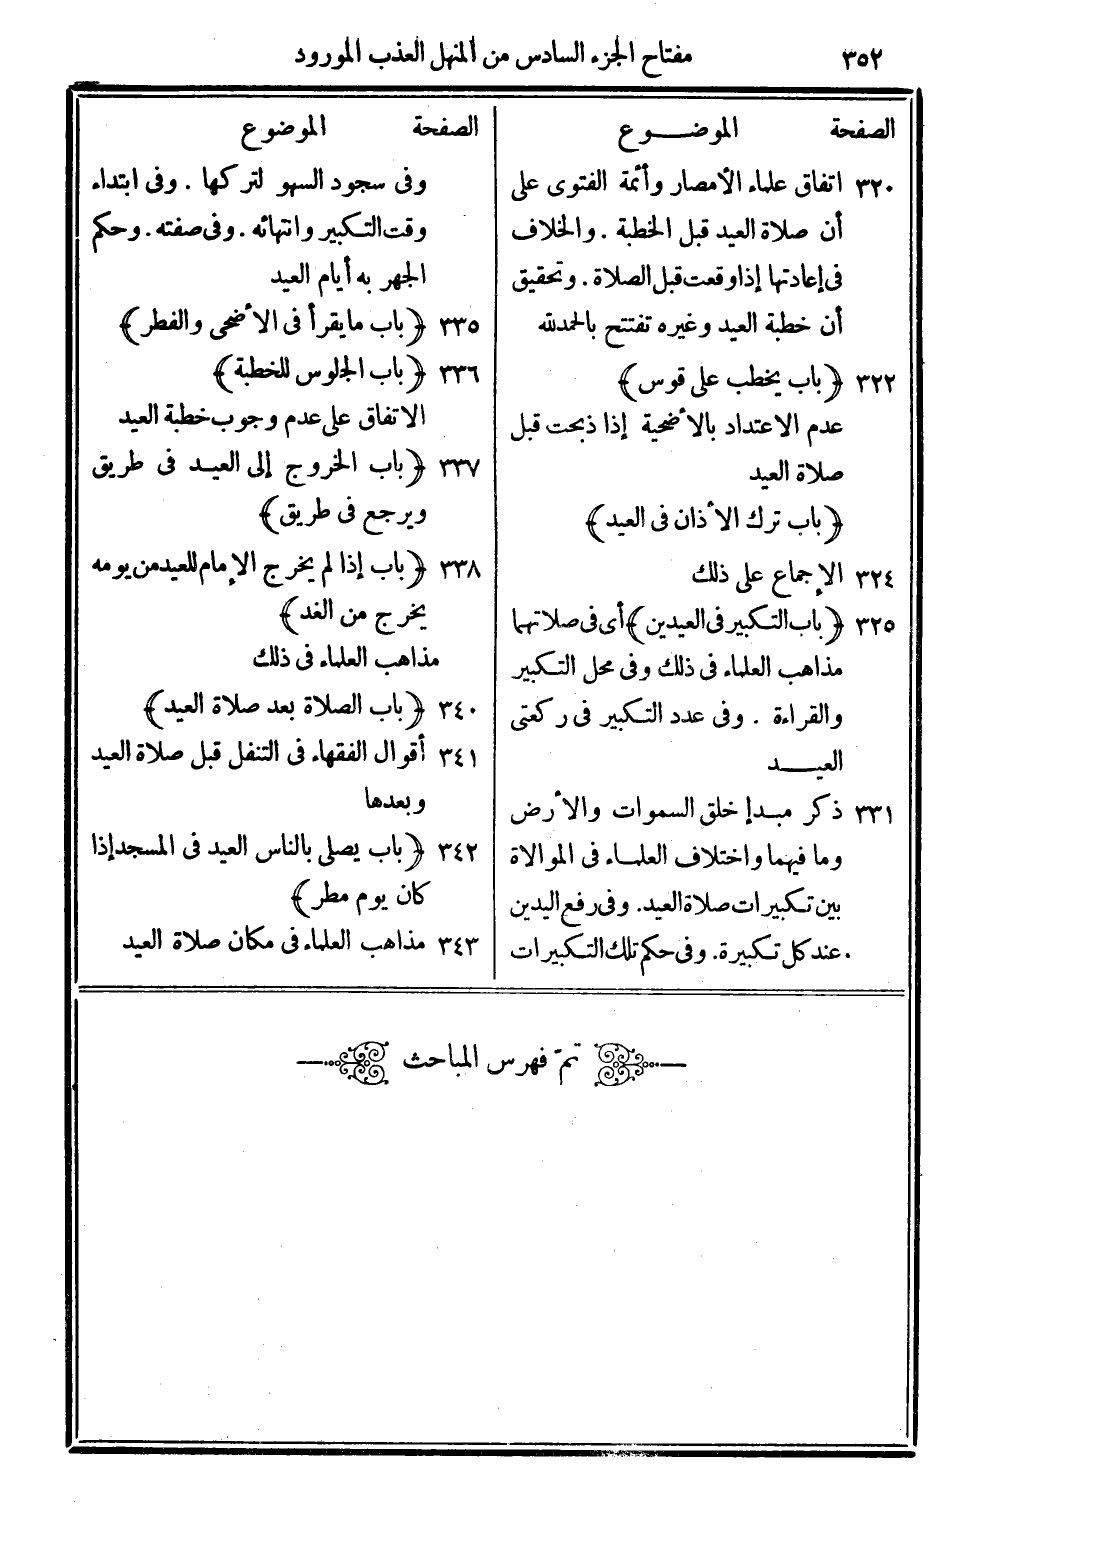 ٣٥٢ مفتاح الجزء السادس من المنهل العذب المورود
الصفحة الموضـــوع
٣٢٠ اتفاق علماء الأمصار وأئمة الفتوى على
أن صلاة العيد قبل الخطبة . والخلاف
فى إعادتها إذا وقعت قبل الصلاة . وتحقيق
أن خطبة العيد وغيره تفتتح بالحمد لله
٣٢٢ ﴿ باب يخطب على قوس ﴾
عدم الاعتداد بالأضحية إذا ذبحت قبل
صلاة العيد
﴿ باب ترك الأذان فى العيد ﴾
٣٢٤ الإجماع على ذلك
٣٢٥ ﴿ باب التكبير فى العيدين ﴾ أى فى صلاتهما
مذاهب العلماء فى ذلك وفى محل التكبير
والقراءة . وفى عدد التكبير فى ركعتى
العيـــد
٣٣١ ذكر مبدإ خلق السموات والأرض
وما فيهما واختلاف العلماء فى الموالاة
بين تكبيرات صلاة العيد. وفى رفع اليدين
. عند كل تكبيرة. وفى حكم تلك التكبيرات
الصفحة الموضوع
وفى سجود السهو لتركها . وفى ابتداء
وقت التكبير وانتهائه . وفى صفته . وحكم
الجهر به أيام العيد
٣٣٥ ﴿ باب ما يقرأ فى الأضحى والفطر ﴾
٣٣٦ ﴿ باب الجلوس للخطبة ﴾
الاتفاق على عدم وجوب خطبة العيد
٣٣٧ ﴿ باب الخروج إلى العيـد فى طريق
ويرجع فى طريق ﴾
٣٣٨ ﴿ باب إذا لم يخرج الإمام للعيد من يومه
يخرج من الغد ﴾
مذاهب العلماء فى ذلك
٣٤٠ ﴿ باب الصلاة بعد صلاة العيد ﴾
٣٤١ أقوال الفقهاء فى التنفل قبل صلاة العيد
وبعدها
٣٤٢ ﴿ باب يصلى بالناس العيد فى المسجد إذا
كان يوم مطر ﴾
٣٤٣ مذاهب العلماء فى مكان صلاة العيد
تمّ فهرس المباحث